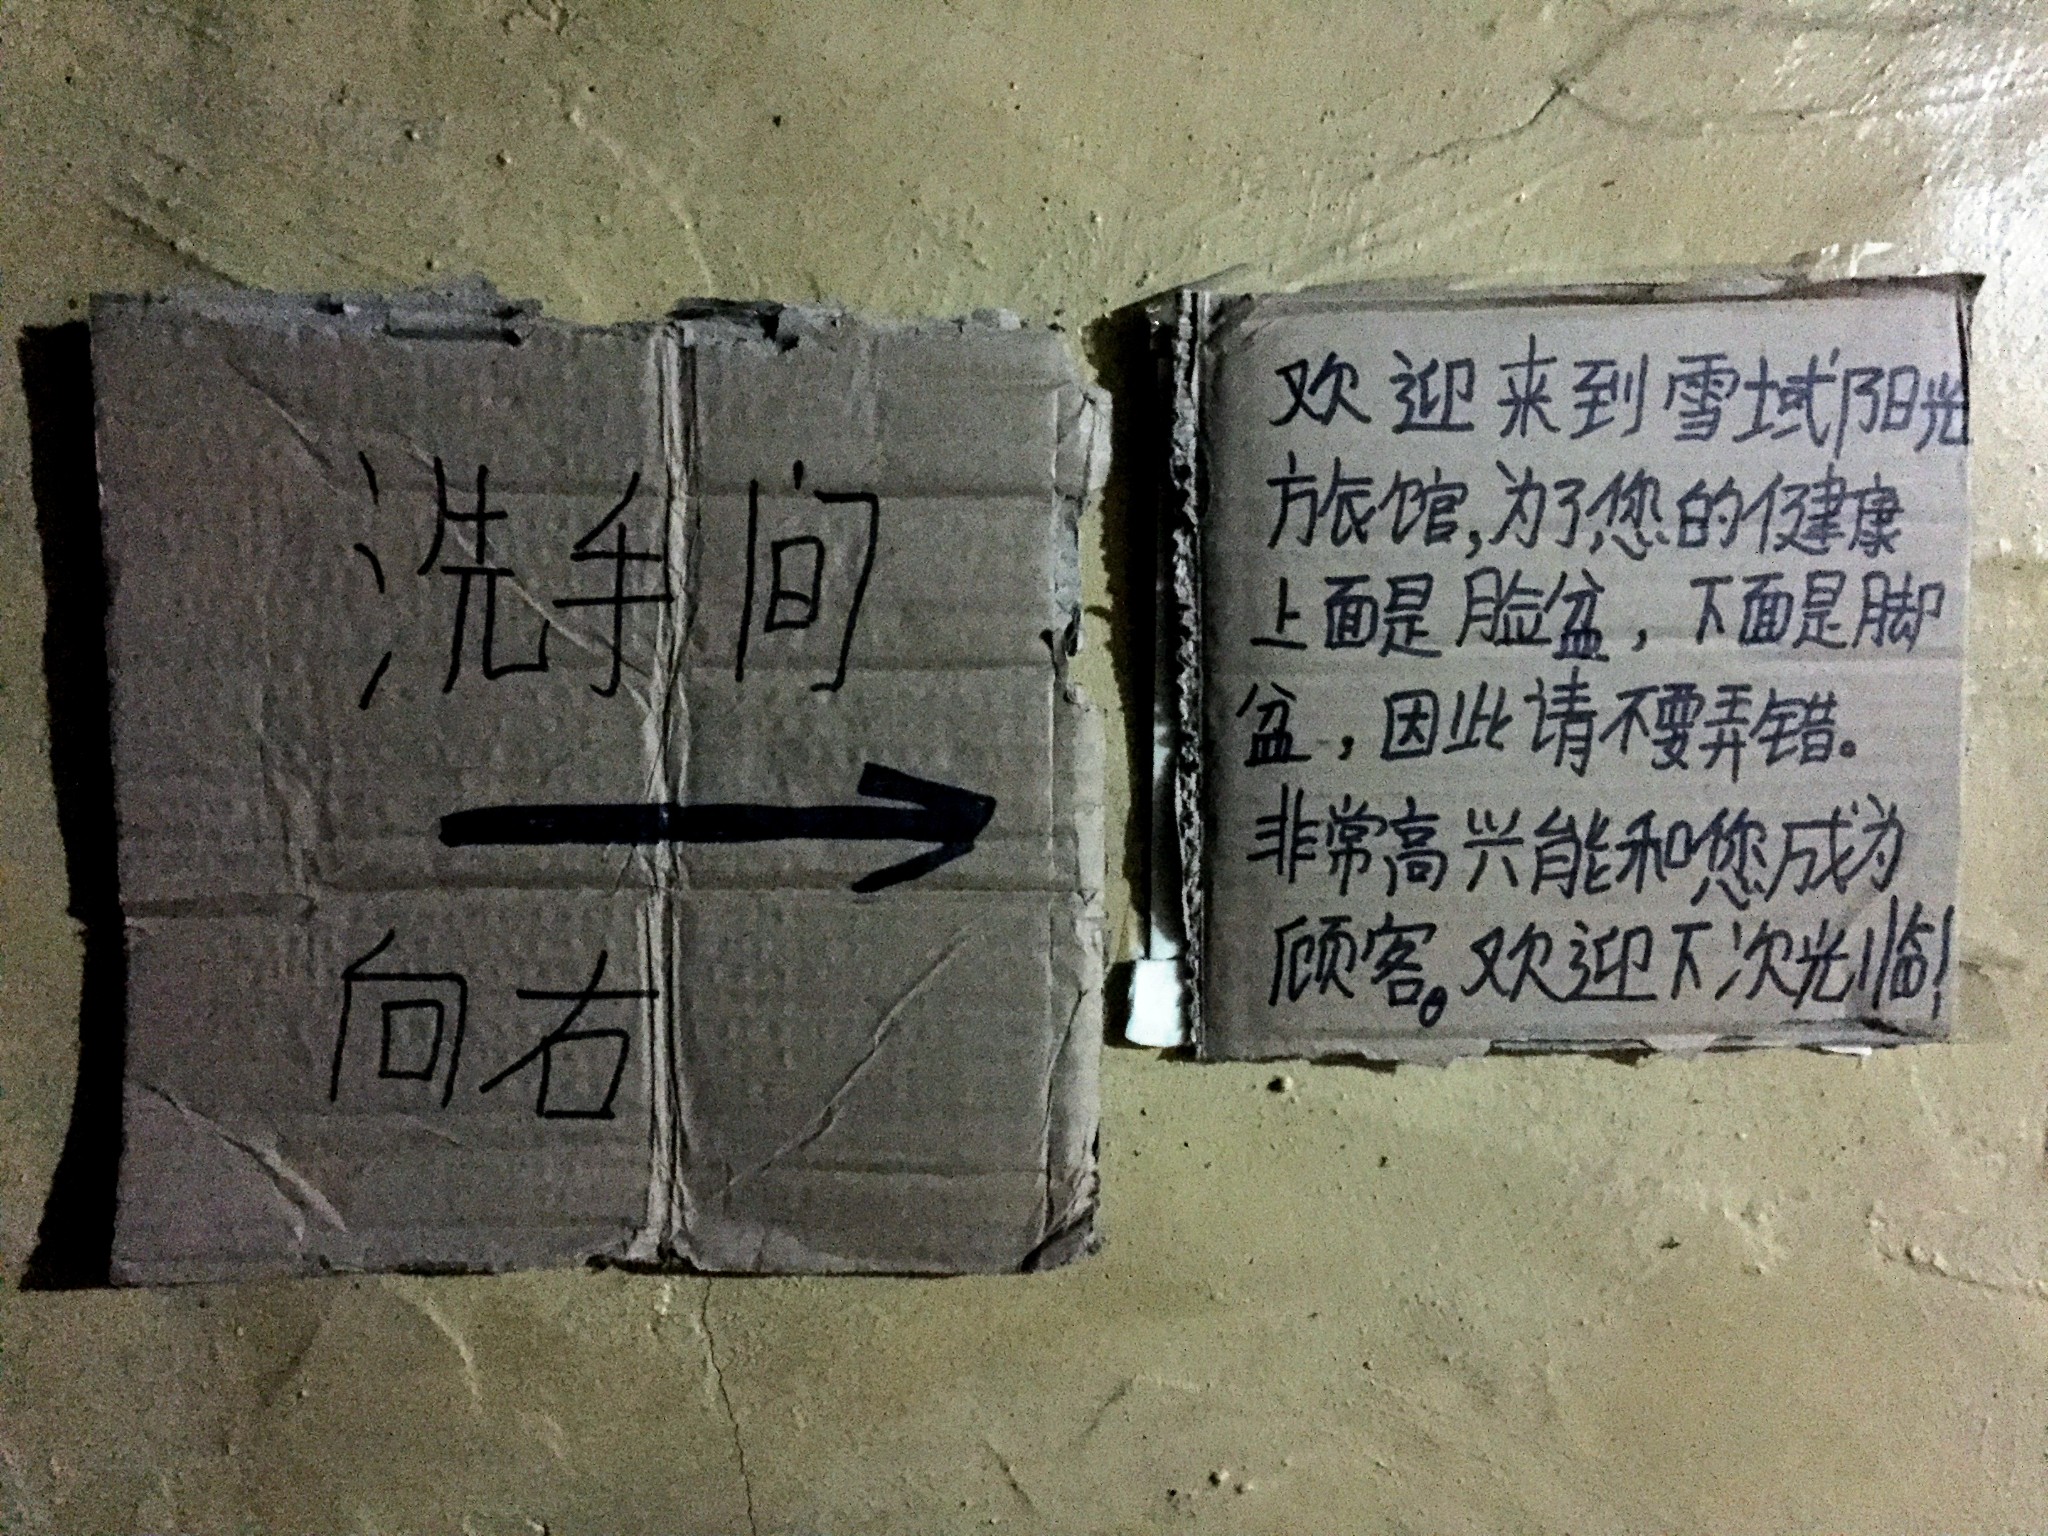 洗手间
向右
欢迎来到雪域阳光
方旅馆,为了您的健康
上面是脸盆,下面是脚
盆,因此请不要弄错。
非常高兴能和您成为
顾客。欢迎下次光临!